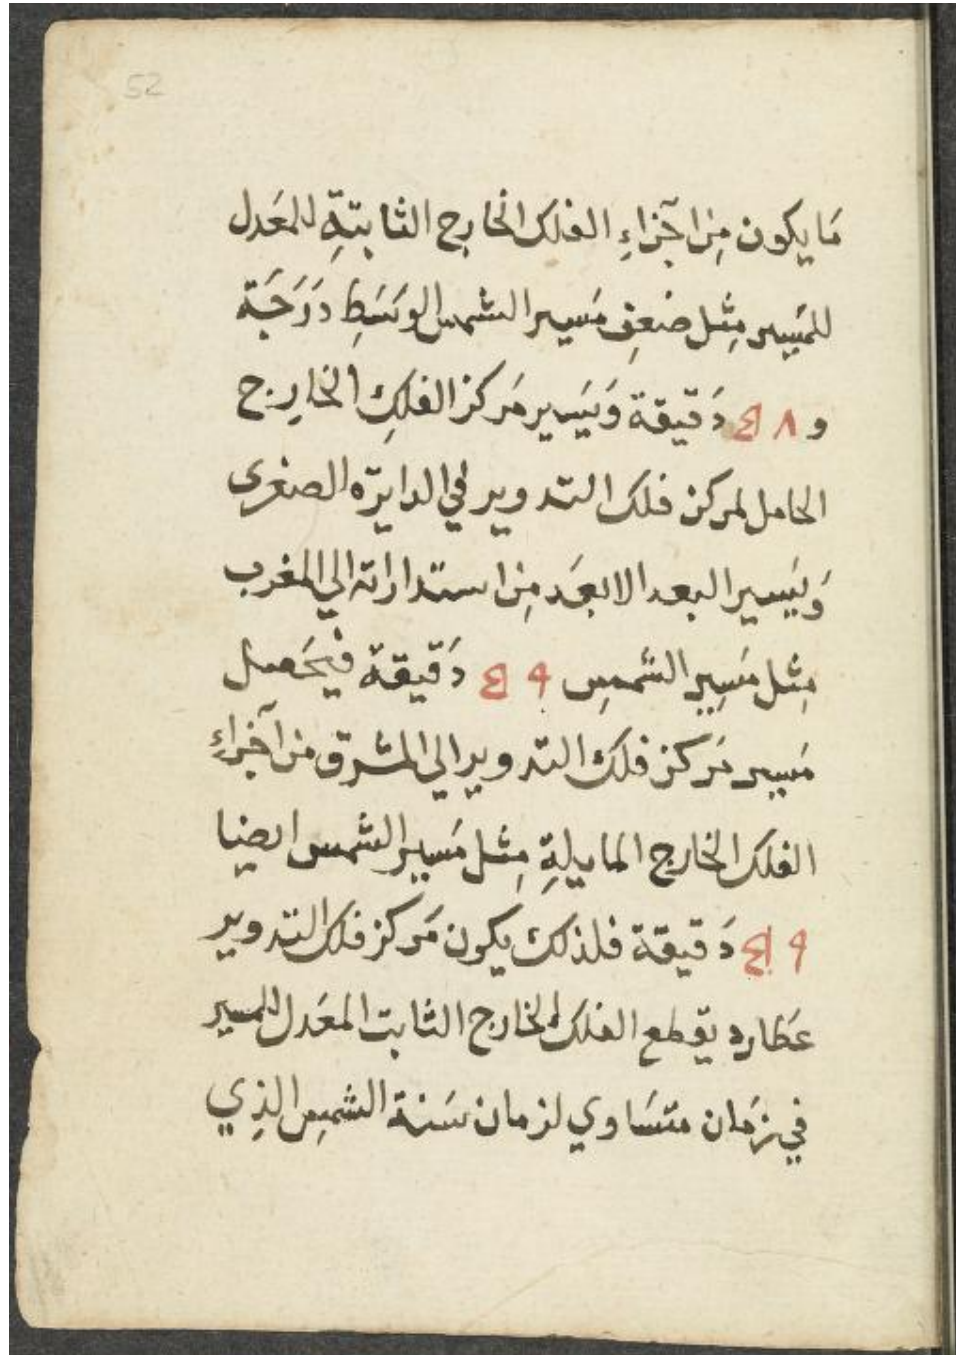 52
مَا يكون مِن اجزاءِ الفلك الخارج الثابتةِ للمعَدل
للمَسِير مِثل ضعفِ مَسير الشمس الوسَطِ دَرَجَة
و ٥٨ دَقيقة وَيَسير مَركز الفلكِ الخارِج
الحامل لمركز فلك التدوير في الدايرَه الصغرى
وَيَسير البعد الابعَد مِن استداراته الي المغرب
مِثل مَسِير الشمسِ ٥٩ دَقيقة فيحَصل
مَسير مَركز فلك التدوير الي المشرق من آجزاءِ
الفلك الخارج المايلةِ مِثل مَسير الشمس ايضا
٥٩ دَقيقة فلذلك يكون مَركز فلك التدوير
عَطارد يقطع الفلك الخارج الثابت المعَدل للمسير
في زمَان متسَاوي لزمان سَنة الشمسِ الذِي